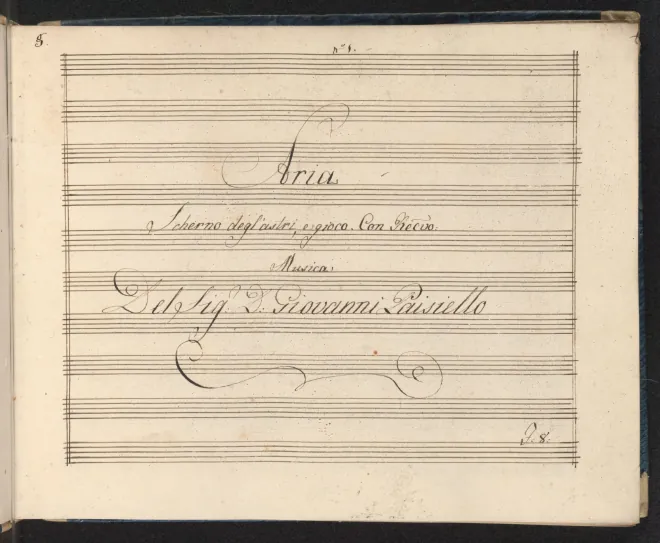 8
nº 1.
Aria
Scherno degl'astri, e gioco. Con Rec:vo
Musica
Del Sig.r D. Giovanni Paisiello